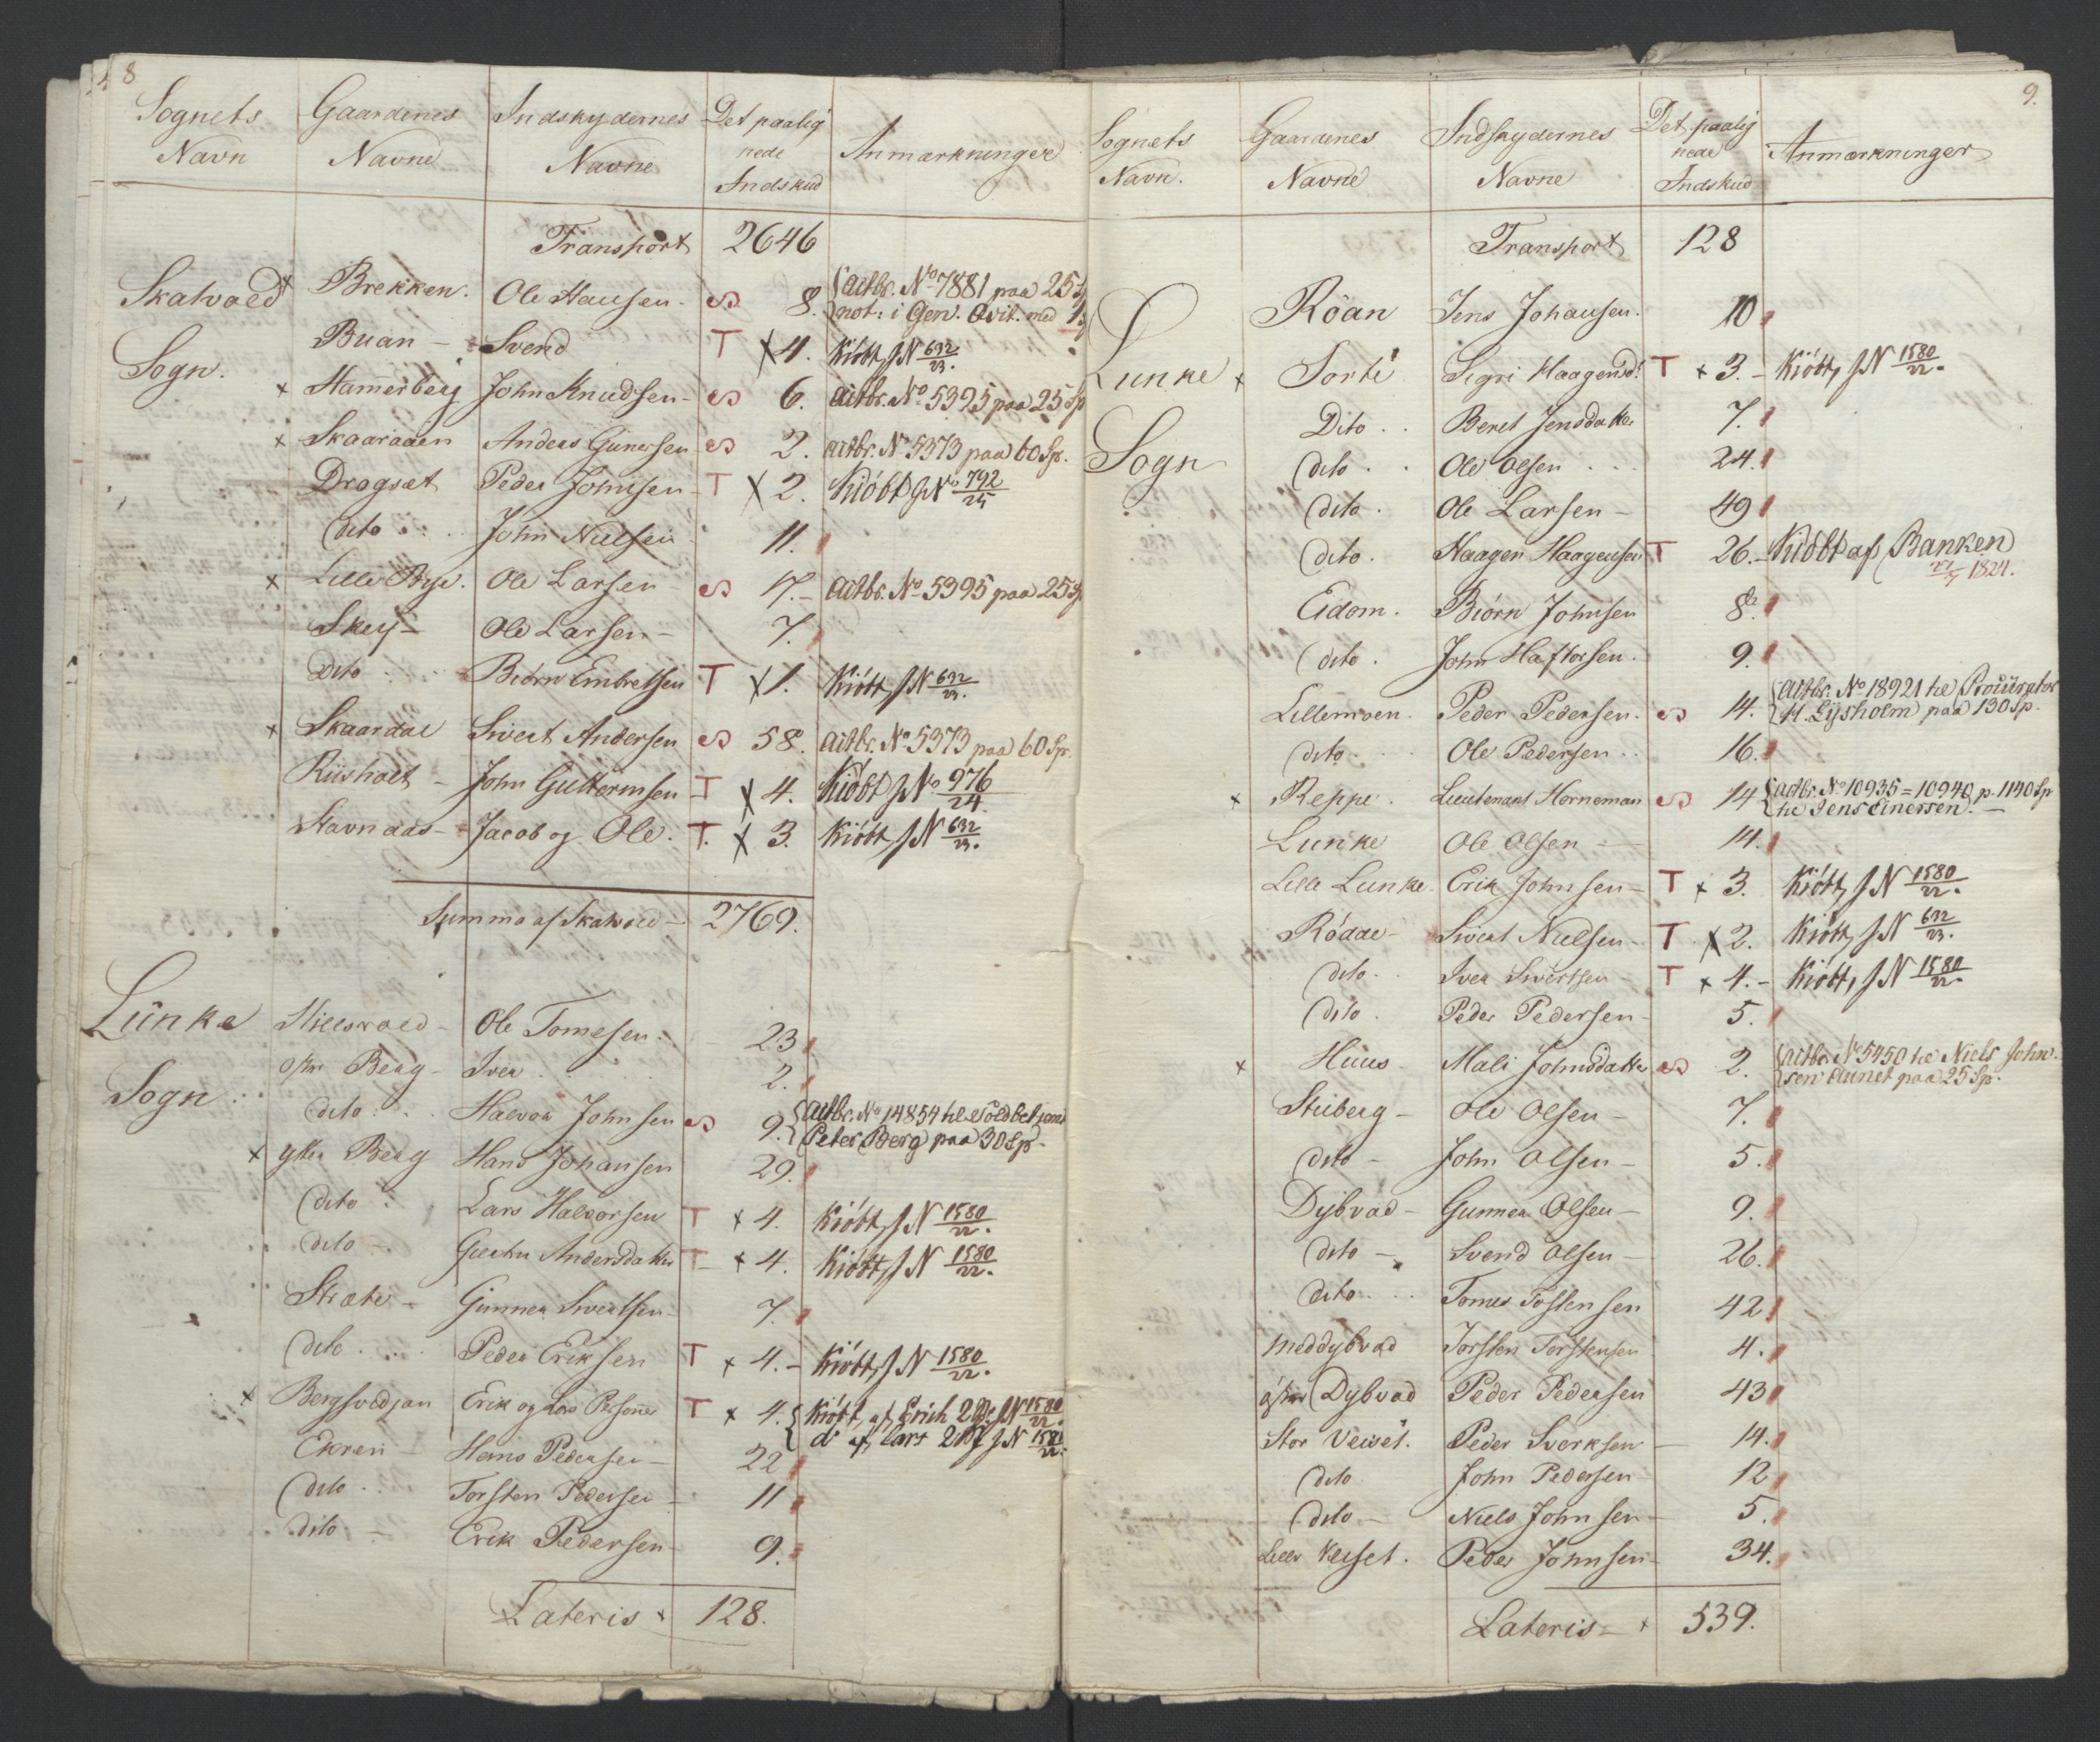 8
Sognets Navn | Gaardenes Navne | Indskydernes Navne | Det paalignede Indskud | Anmærkninger
Transport 2646
Skatvold Sogn.
x Brekken. Ole Hansen - S 8. {actbr. No 7881 paa 25 Sp
{not: i Gen. Qvit. med
Buan - Svend T x 4. Kiöbt, JN 632/23.
x Hammerberg John Knudsen - S 6. actbr. No 5395 paa 25 Sp
x Skaaraaen Anders Gunersen S 2. actbr. No 5373 paa 60 Sp.
Dragsæt Peder Johnsen - T x 2. Kiöbt JNo 792/25
dito John Nielsen 11.
x Lille Bye. Ole Larsen - S 17. - actbr. No 5395 paa 25 Sp
Skey - Ole Larsen - 7.
Dito Biörn Embretsen T x 1. Kiöbt, JN 632/23.
x Skaardal Sivert Andersen S 58. actbr. No 5373 paa 60 Sp.
Riisholt - John Guttormsen T x 4. Kiöbt JNo 976/24.
Stavnaas - Jacob og Ole. T. x 3. Kiöbt JN 632/23.
Summa af Skatvold - 2769.
Lunke Sogn
Ole Tomesen 23
Berg - Iver 2.
dito Halvor Johnsen S 9. {actbr. No 14854 til
{Peter Berg paa 30 Sp.
x ytter Berg Hans Johansen 29.
dito Lars Halvorsen T x 4. Kiöbt, JN 1580/22.
dito - Andersdatter T x 4. Kiöbt, JN 1580/22.
Stræte - Gunner Sivertsen 7.
dito Peder Eriksen T x 4. - Kiöbt, JN 1580/22.
x Erik og Lars T x 4. {Kiöbt, af Erich 2 JN 1580/22.
{do af Lars 2 JN 1580/22.
Ekren - Hans Pedersen - 22
dito Torsten Pedersen - 11
dito - Erik Pedersen - 9.
Lateris x 128.
9.
Sognets Navn. | Gaardenes Navne | Indskydernes Navne | Det paalignede Indskud | Anmærkninger
Transport 128
Lunke Sogn
Röan Jens Johansen. 10
x Sorte Sigri Haagensd. T x 3. - Kiöbt, JN 1580/22.
Dito Beret Jensdatter 7.
dito Ole Olsen 24.
dito. Ole Larsen - 49
dito. Haagen Haagensen T 26. - Kiöbt af Banken
1821.
Eidom. Biörn Johnsen 8.
dito. John Haftorsen. 9.
Lillemoen. Peder Pedersen. S 14. {actbr. No 18921 til Procurator
{H. Lysholm paa 130 Sp.
dito Ole Pedersen 16.
x Reppe. Lieutenant Horneman S 14 {actbr. No 10935 = 10940 p. 1140 Sp
{til Jens Einersen. -
Lunke Ole Olsen - 14.
Lille Lunke. Erik Johnsen - T x 3. Kiöbt, JN 1580/22.
Rödde - Sivert Nielsen - T x 2. Kiöbt, JN 632/23.
dito Iver Sivertsen T x 4. - Kiöbt, JN 1580/22.
Dito. Peder Pedersen - 5.
x Huus Mali Johnsdatter S 2. {actbr. No 5450 til Niels John-
{sen Aunet paa 25 Sp.
Stuberg - Ole Olsen - 7.
dito - John Olsen - 5.
Dybvad - Gunner Olsen - 9.
dito - Svend Olsen - 26.
dito Tomes Tostensen 42
meddybvad Torsten Torstensen 4.
Dybvad Peder Pedersen 43
Stor Veiset. Peder Sverksen - 14.
dito John Pedersen 12
Dito - Niels Johnsen - 5.
Lille Veiset. Peder Johnsen - 34.
Lateris - x 539.